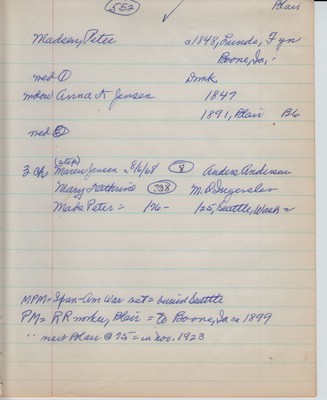 552
Blair
Madsen, Peter a1848, Lunde, Fyn
Boone, Ia,
med ① Dmk
widow Anna K Jensen 1847
1891, Blair B6
med ②
3 ch = (step) Maren Jensen = 8/6/68 8 Anders Andersen
Mary Kathrine 398 M.
Mads Peter = 176 - 1/25, Seattle, Wash
MPM = Span-Am War vet = buried Seattle
PM = RR worker, Blair = to Boone, Ia ca 1899
" Blair @ 75 = in Nov. 1923